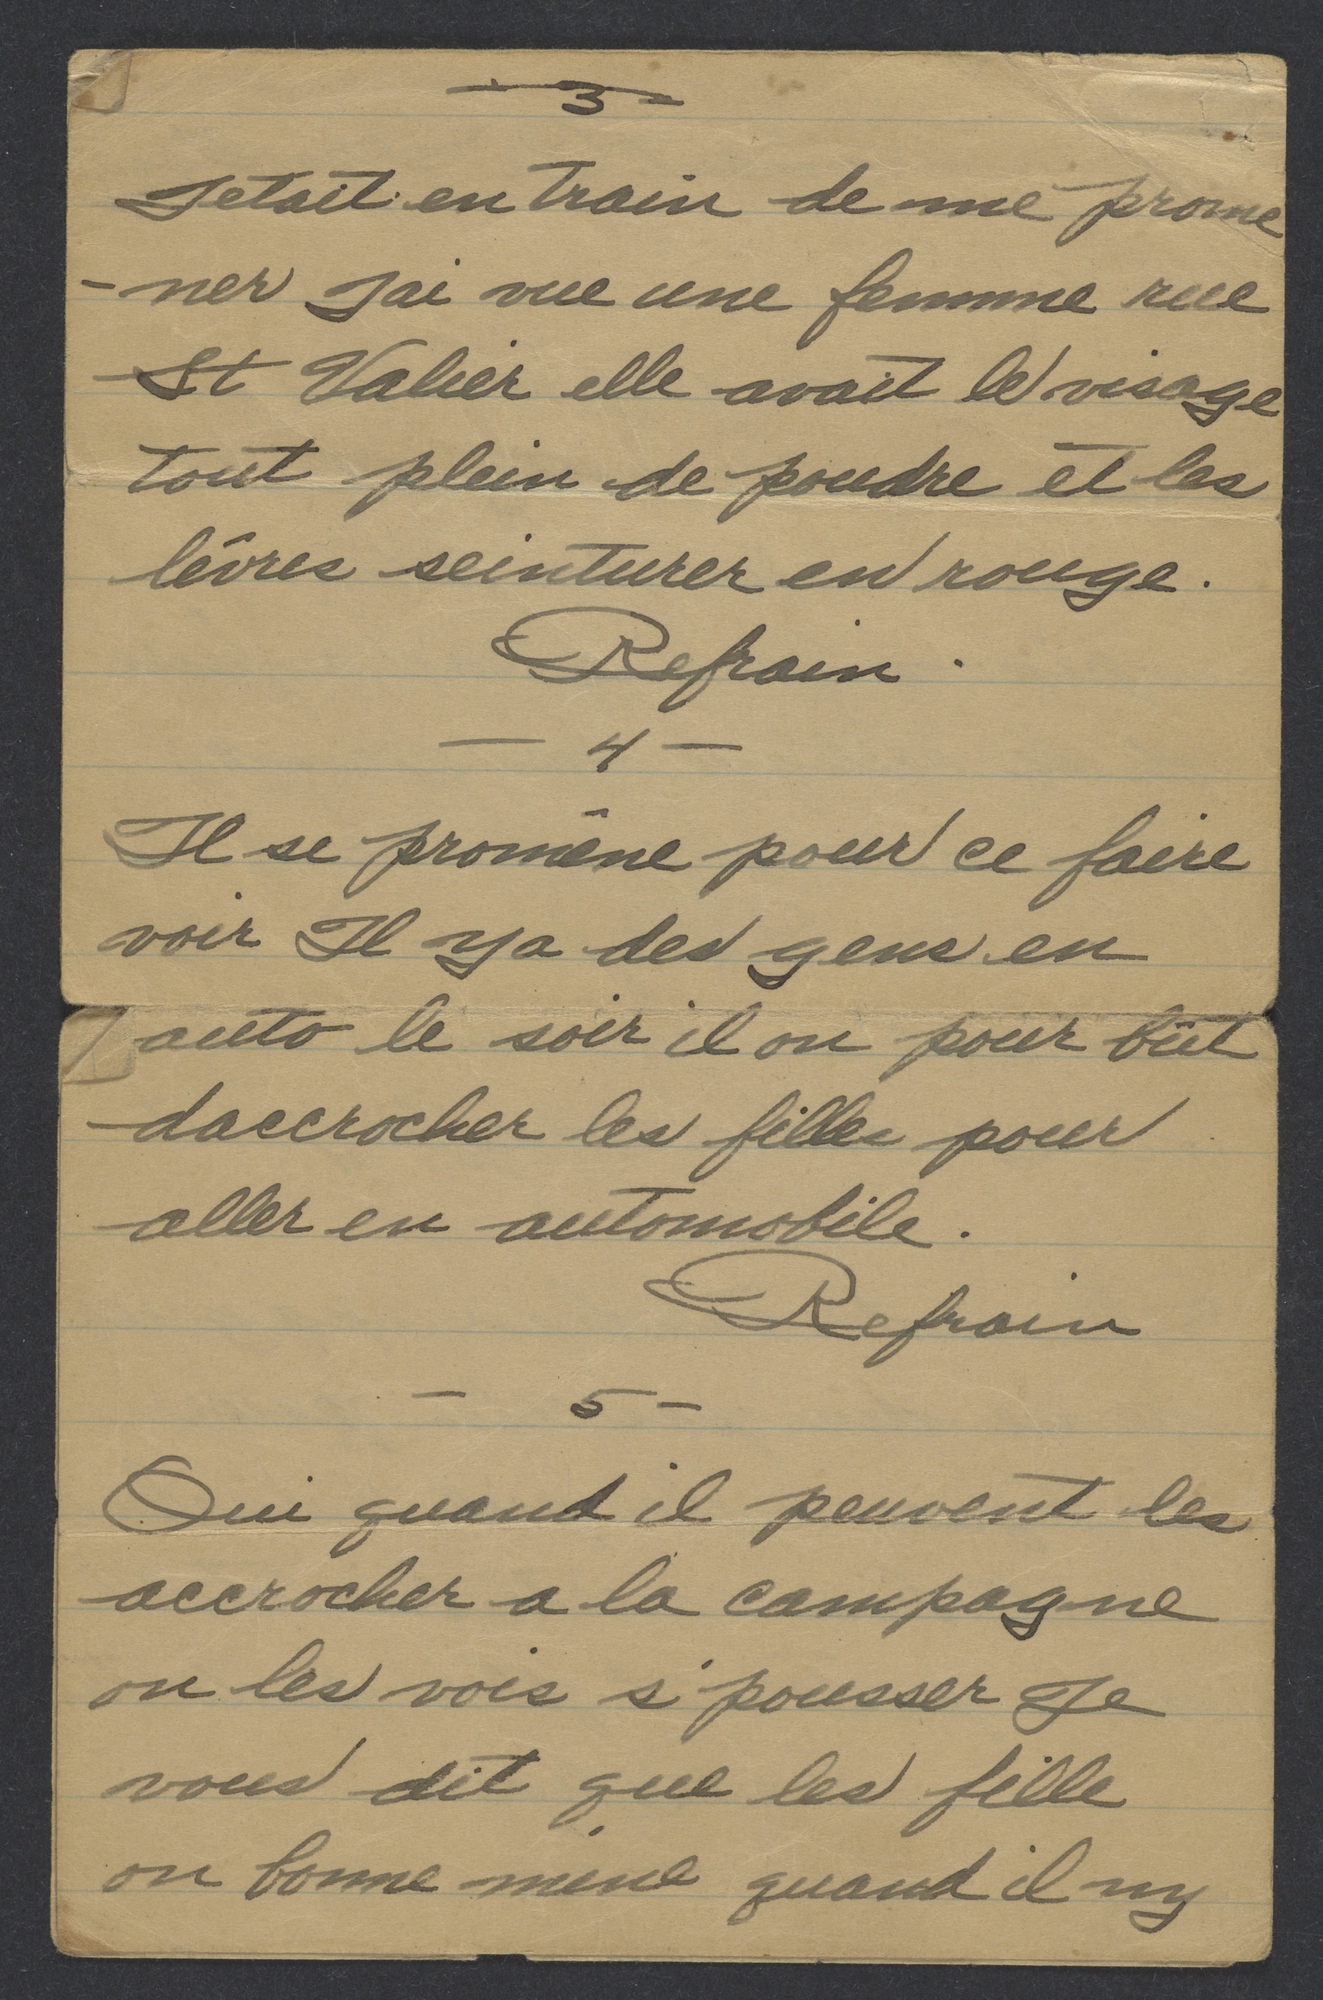 - 3 -
Jetait en train de me prome
- ner Jai vue une femme rue
St Valier elle avait le visage
tout plein de poudre et les
lêvres seinturer en rouge.
Refrain.
- 4 -
Il se promêne pour ce faire
voir Il ya des gens en
auto le soir il on pour bût
daccrocher les filles pour
aller en automobile.
Refrain
- 5 -
Oui quand il peuvent les
accrocher a la campagne
on les vois s'pousser Je
vous dit que les fille
on bonne mine quand il ny